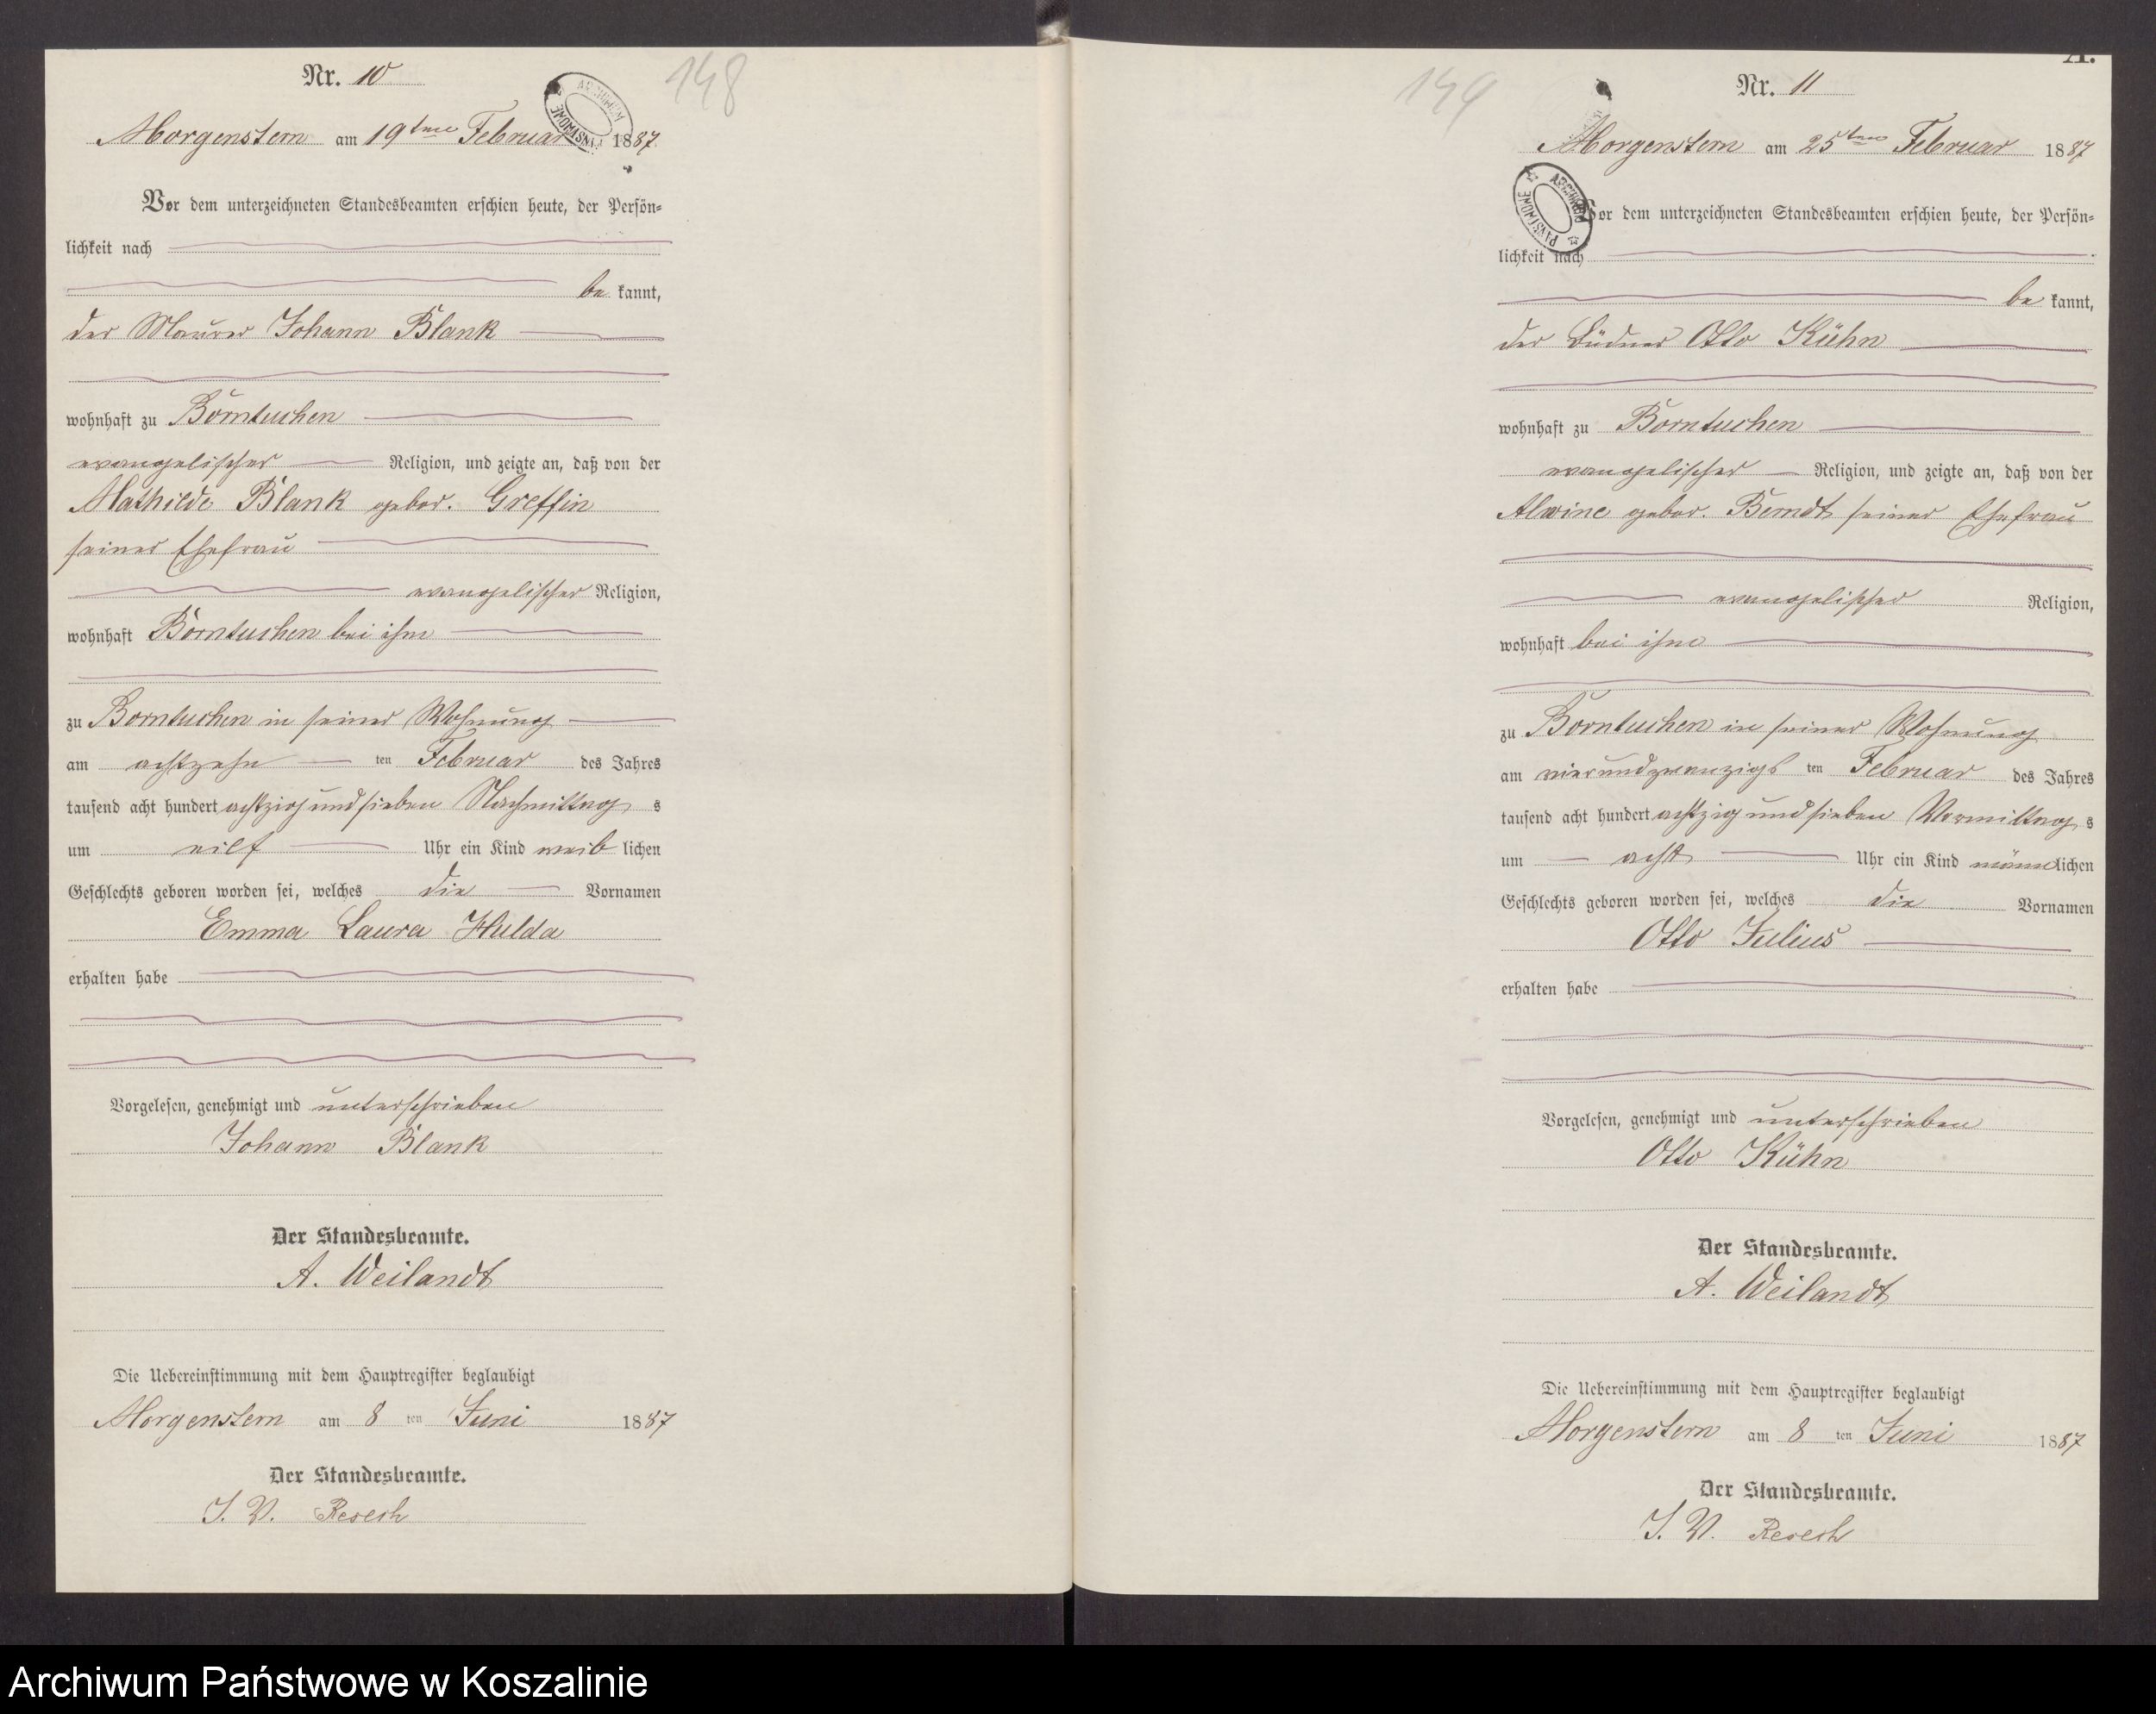 Nr. 10
148
Morgenstern am 19ten Februar 1887
Vor dem unterzeichneten Standesbeamten erschien heute, der Persön-
lichkeit nach
be kannt,
der Maurer Johann Blank
wohnhaft zu Borntuchen
evangelischer Religion, und zeigte an, daß von der
Mathilde Blank gebor. Greffin
seiner Ehefrau
evangelischer Religion,
wohnhaft Borntuchen bei ihm
zu Borntuchen in seiner Wohnung
am achtzehn ten Februar des Jahres
tausend acht hundert achtzig und sieben Nachmittag s
um eilf Uhr ein Kind weib lichen
Geschlechts geboren worden sei, welches die Vornamen
Emma Laura Hulda
erhalten habe
Vorgelesen, genehmigt und unterschrieben
Johann Blank
Der Standesbeamte.
A. Weilandt
Die Uebereinstimmung mit dem Hauptregister beglaubigt
Morgenstern am 8 ten Juni 1887
Der Standesbeamte.
J. V.
149
A.
Nr. 11
Morgenstern am 25ten Februar 1887
Vor dem unterzeichneten Standesbeamten erschien heute, der Persön-
lichkeit nach
be kannt,
der Büdner Otto Kühn
wohnhaft zu Borntuchen
evangelischer Religion, und zeigte an, daß von der
Alwine gebor. Berndt seiner Ehefrau
evangelischer Religion,
wohnhaft bei ihm
zu Borntuchen in seiner Wohnung
am vierundzwanzigs ten Februar des Jahres
tausend acht hundert achtzig und sieben Vormittag s
um acht Uhr ein Kind männ lichen
Geschlechts geboren worden sei, welches die Vornamen
Otto Julius
erhalten habe
Vorgelesen, genehmigt und unterschrieben
Otto Kühn
Der Standesbeamte.
A. Weilandt
Die Uebereinstimmung mit dem Hauptregister beglaubigt
Morgenstern am 8 ten Juni 1887
Der Standesbeamte.
J. V.
Archiwum Państwowe w Koszalinie